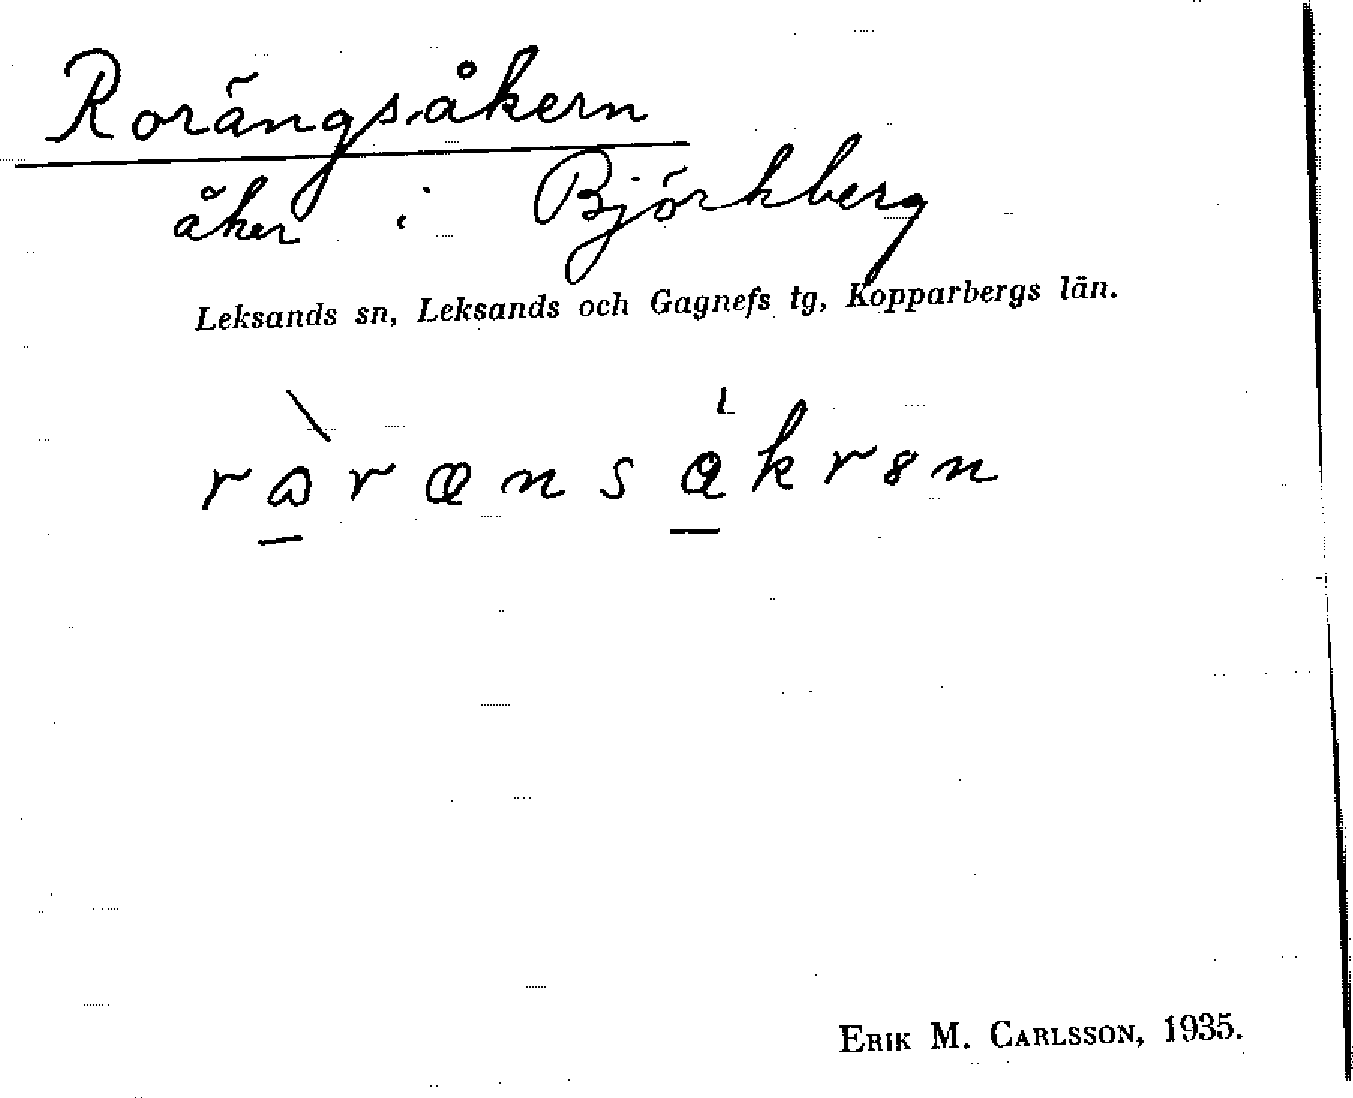 Rorängsåkern
åker i Björkberg
Leksands sn, Leksands och Gagnefs tg, Kopparbergs län.
ERIK M. CARLSSON, 1935.